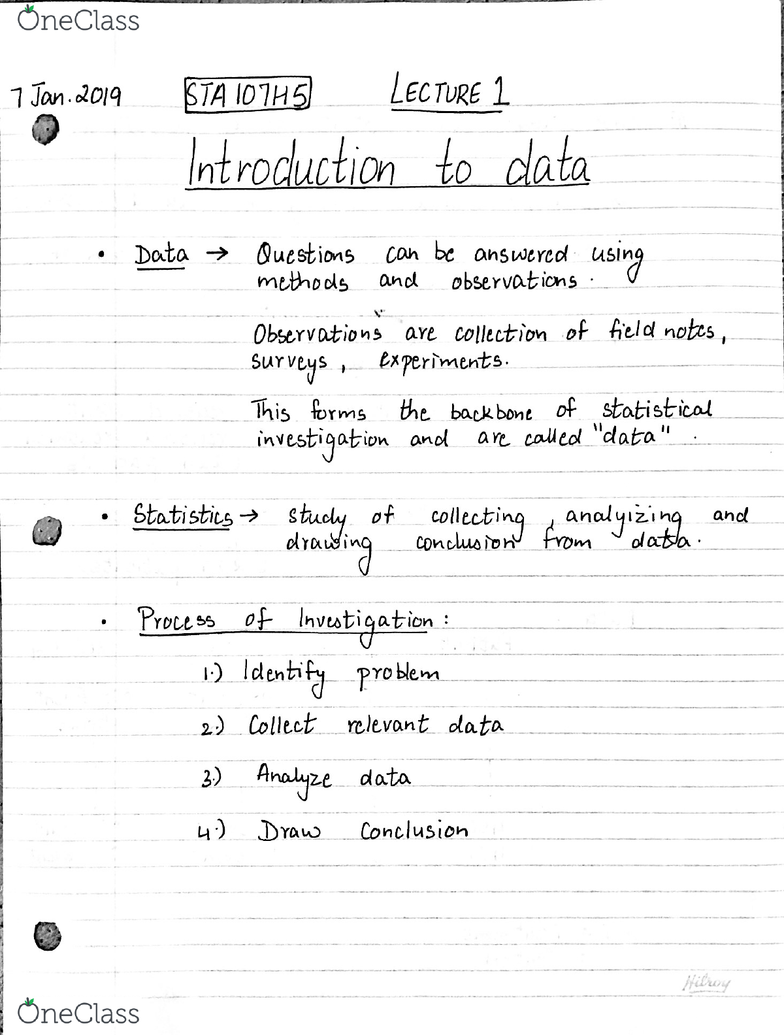 OneClass
7 Jan. 2019 STA 107H5 LECTURE 1
Introduction to data
• Data → Questions can be answered using
methods and observations.
Observations are collection of field notes,
surveys, experiments.
This forms the backbone of statistical
investigation and are called "data".
• Statistics → study of collecting, analyizing and
drawing conclusion from data.
• Process of Investigation:
1.) Identify problem
2.) Collect relevant data
3.) Analyze data
4.) Draw Conclusion
OneClass